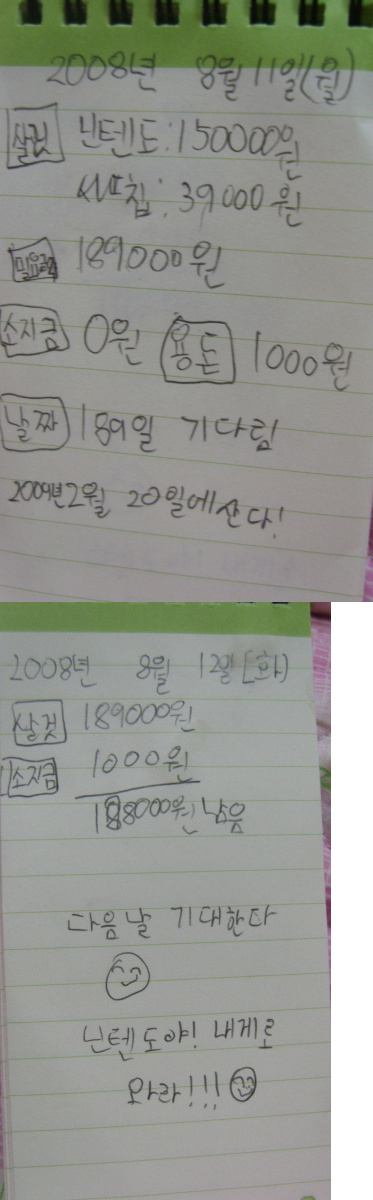 2008년 8월 11일(월)
살것 닌텐도:150000원
써드칩:39000원
필요금액 189000원
소지금 0원 용돈 1000원
날짜 189일 기다림
2009년2월 20일에산다!
2008년 8월 12일(화)
살것 189000원
소지금 1000원
188000원남음
다음날 기대한다
닌텐도야! 내게로
와라!!!